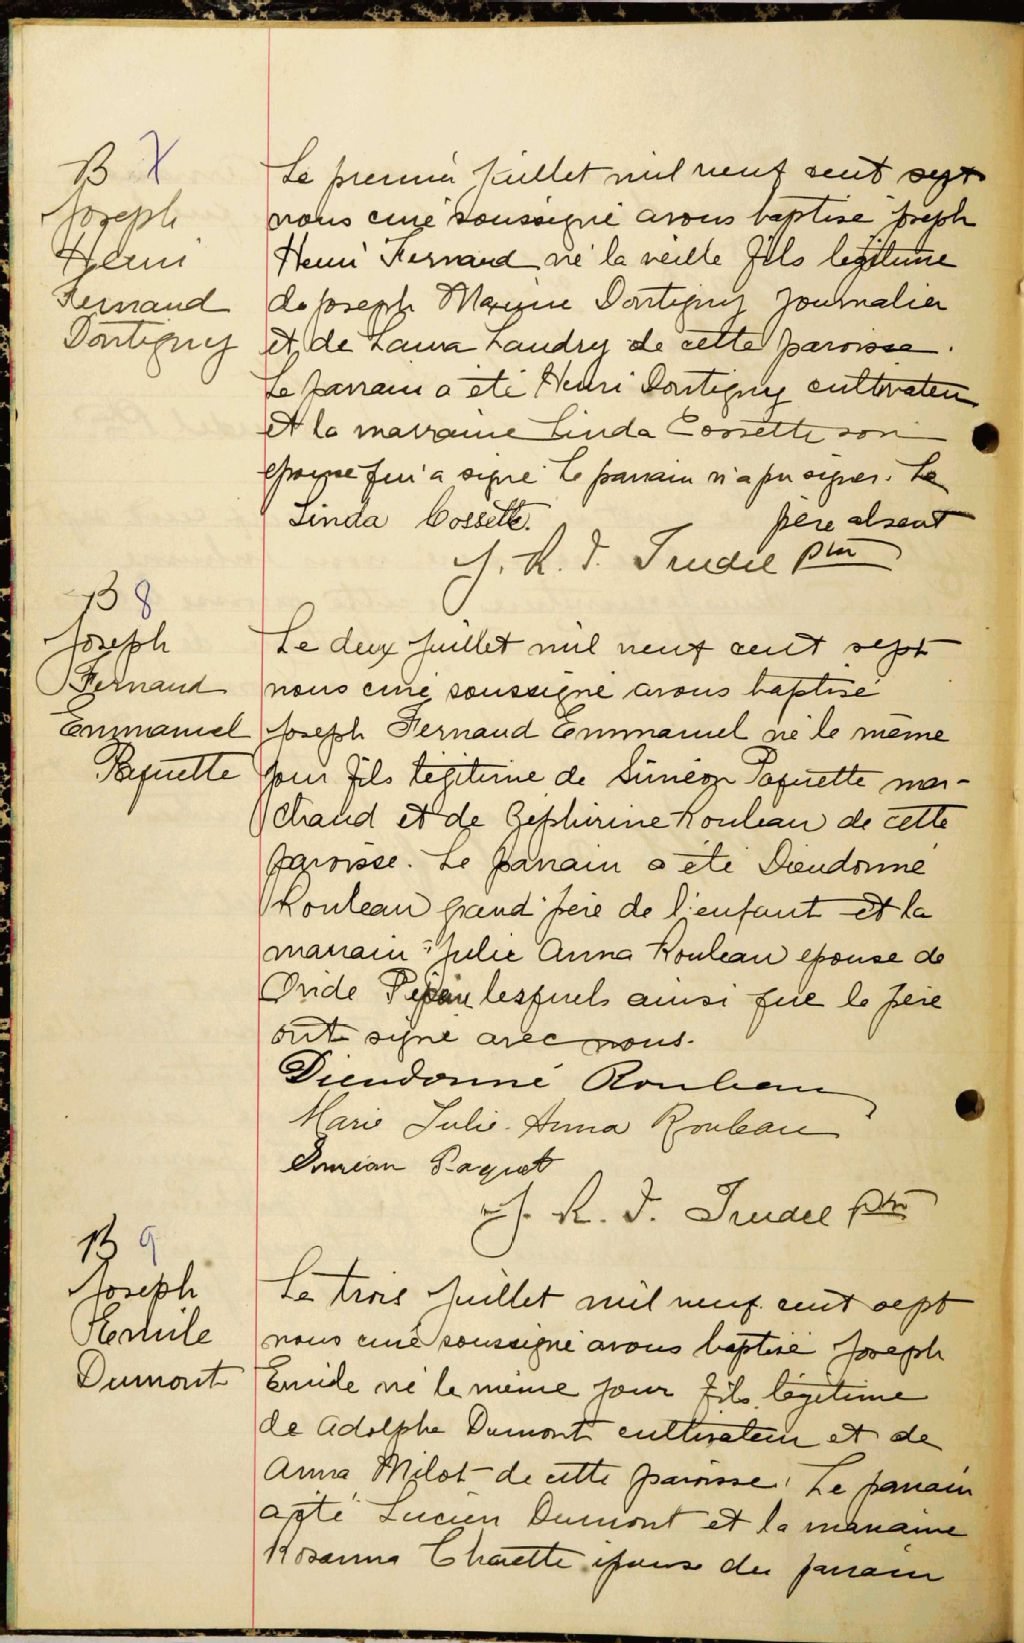 B 7
Joseph
Henri
Fernand
Dontigny
Le premier Juillet mil neuf cent sept
nous curé soussigné avons baptisé Joseph
Henri Fernand né la veille fils légitime
de Joseph Maxime Dontigny Journalier
et de Laura Landry de cette paroisse.
Le parrain a été Henri Dontigny cultivateur
et la marraine Linda Cossette son
epouse qui a signé Le parrain n'a pu signer. Le
Linda Cossette. père absent
J. R. J. Trudel ptre
B 8
Joseph
Fernand
Emmanuel
Paquette
Le deux Juillet mil neuf cent sept
nous curé soussigné avons baptisé
Joseph Fernand Emmanuel né le même
jour fils légitime de Siméon Paquette mar-
chand et de Zéphirine Rouleau de cette
paroisse. Le parrain a été Dieudonné
Rouleau grand père de l'enfant et la
marraine Julie Anna Rouleau epouse de
Ovide Pépin lesquels ainsi que le père
ont signé avec nous.
Dieudonné Rouleau
Marie Julie-Anna Rouleau
Simeon Paquet
J. R. J. Trudel ptre
B 9
Joseph
Emile
Dumont
Le trois Juillet mil neuf cent sept
nous curé soussigné avons baptisé Joseph
Emile né le même jour fils légitime
de Adolphe Dumont cultivateur et de
Anna Milot de cette paroisse. Le parrain
a été Lucien Dumont et la marraine
Rosanna Charette épouse du parrain